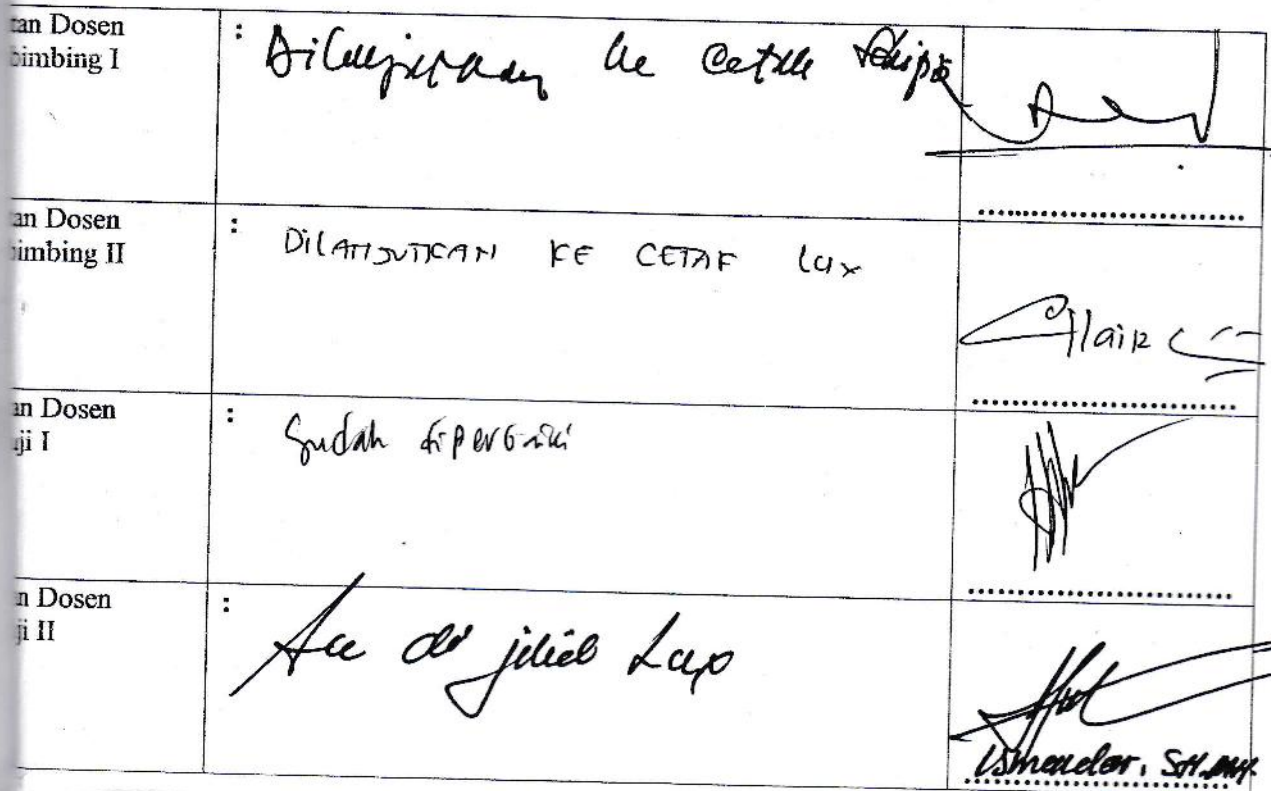 an Dosen
bimbing I
: Dilanjutkan ke cetak skripsi
an Dosen
bimbing II
: DILANJUTKAN KE CETAK lux
an Dosen
ji I
: Sudah diperbaiki
n Dosen
ji II
: Acc di jilid Lux
Ismeader, SH.MH